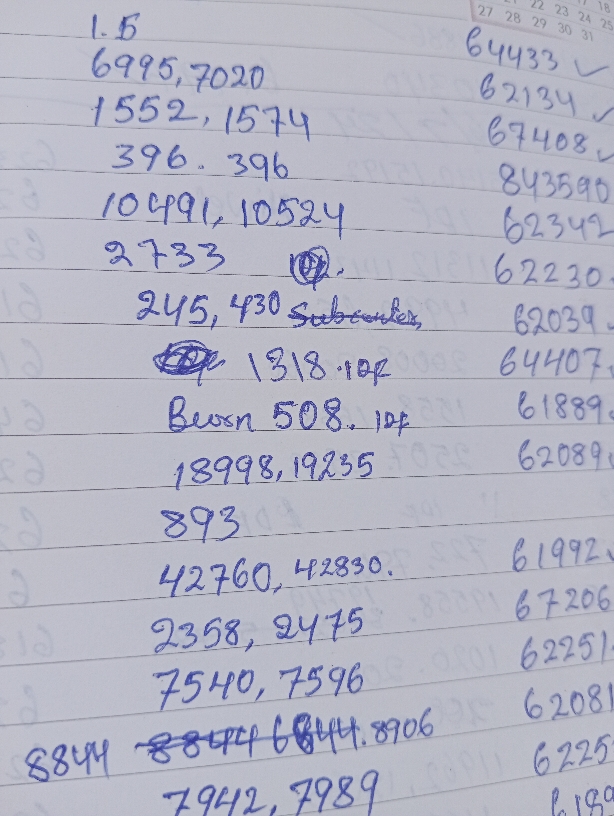 22 23 24 25
27 28 29 30 31
1.5
64433 ✓
6995, 7020
62134 ✓
1552, 1574
67408 ✓
396. 396
843590
10491, 10524
62342
2733
62230
245, 430
62039
1318. IDF
64407
508. IDF
61889
18998, 19235
62089
893
42760, 42830.
61992
2358, 2475
67206
7540, 7596
62251
8844 8906
62081
7942, 7989
6225